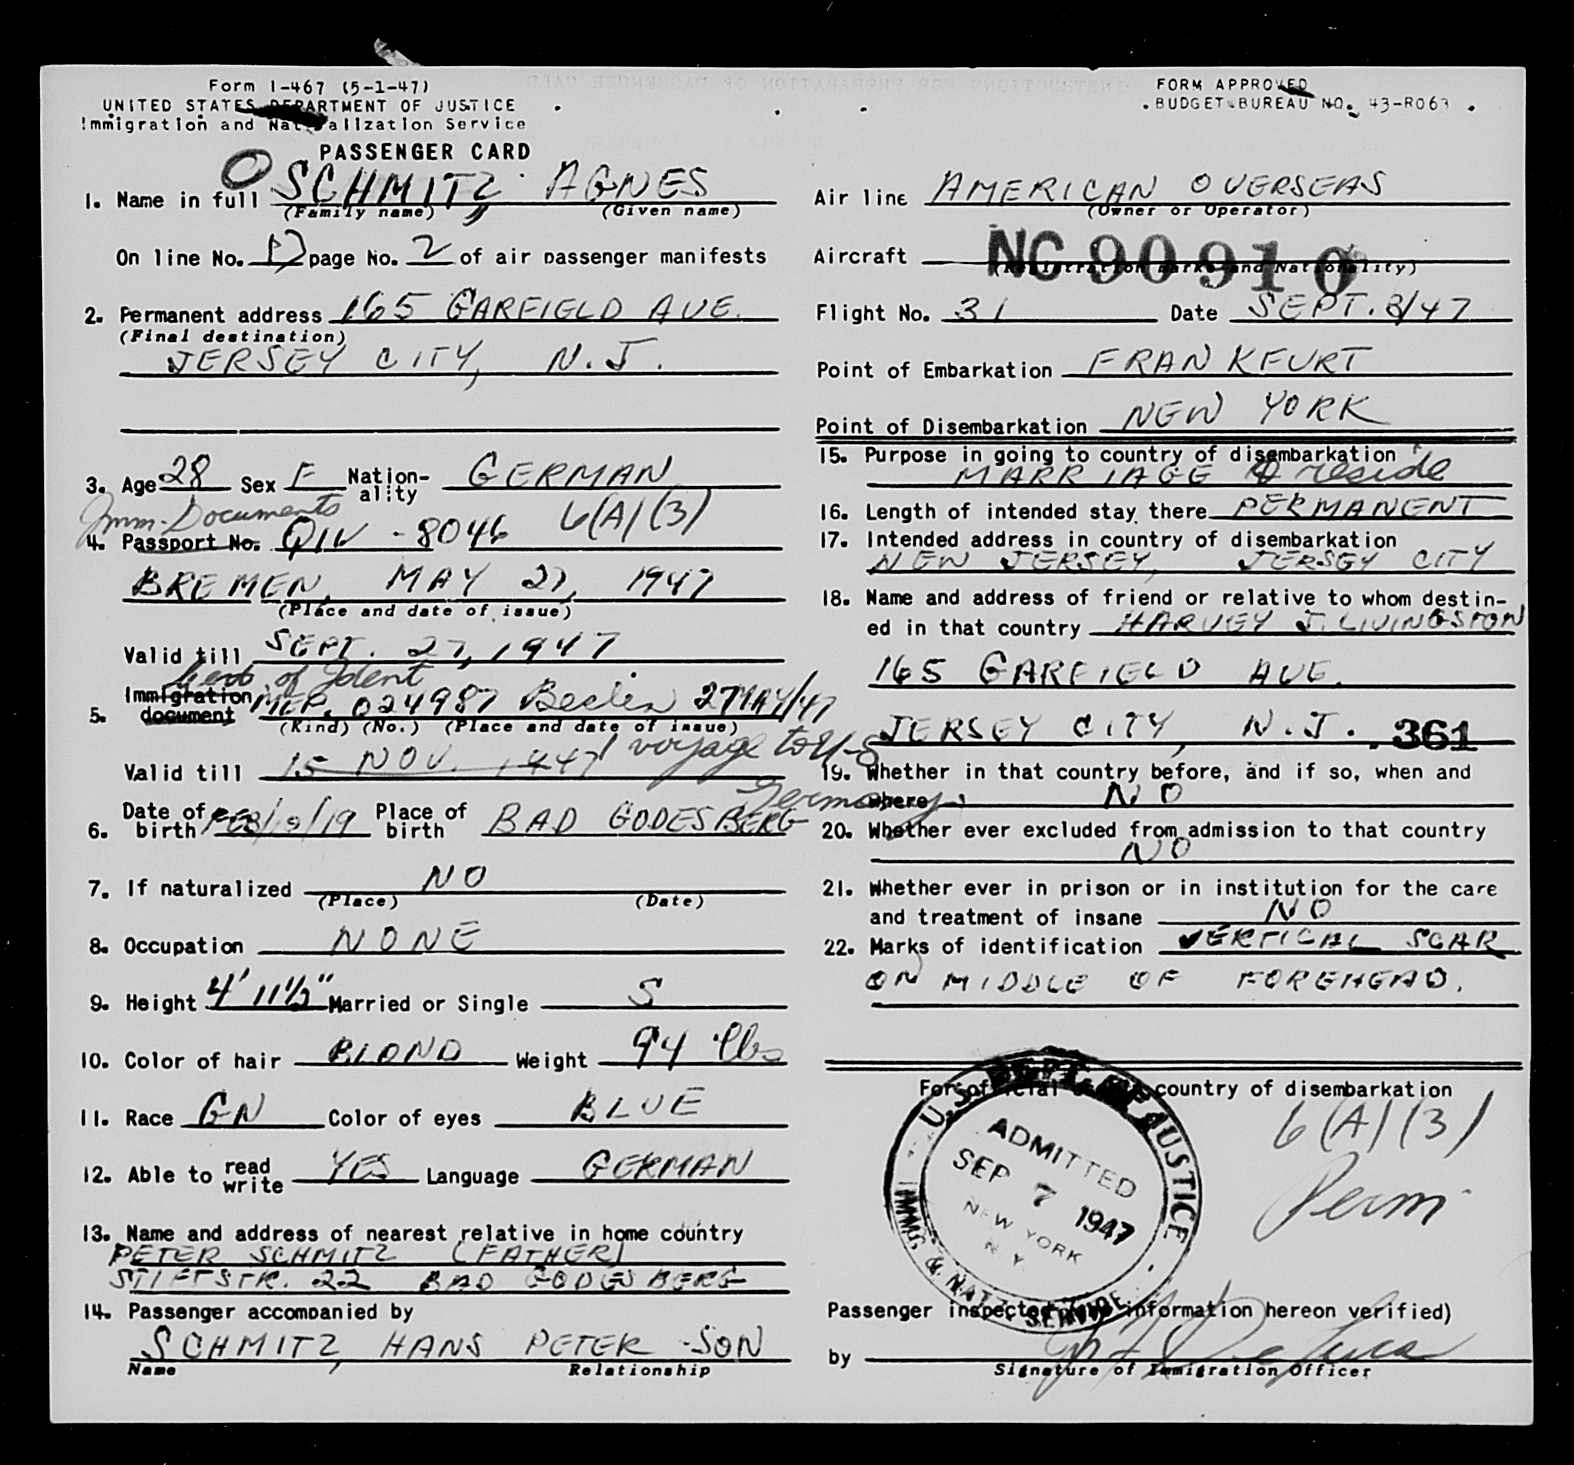 Form I-467 (5-1-47)
UNITED STATES DEPARTMENT OF JUSTICE
Immigration and Naturalization Service
FORM APPROVED
BUDGET BUREAU NO. 43-R063
PASSENGER CARD
1. Name in full SCHMITZ, AGNES
(Family name) (Given name)
On line No. 17 page No. 2 of air passenger manifests
2. Permanent address 165 GARFIELD AVE.
(Final destination)
JERSEY CITY, N.J.
3. Age 28 Sex F Nation-ality GERMAN
Imm. Documents
4. Passport No. QIV -8046 6(A)(3)
BREMEN, MAY 27, 1947
(Place and date of issue)
Valid till SEPT. 27, 1947
of Ident
5. Immigration document MEP. 024987 Berlin 27MAY/47
(Kind) (No.) (Place and date of issue)
Valid till 15 NOV. 1947 1 voyage to U-S
Germany
6. Date of birth FEB/10/19 Place of birth BAD GODESBERG
7. If naturalized NO
(Place) (Date)
8. Occupation NONE
9. Height 4' 11½" Married or Single S
10. Color of hair BLOND Weight 94 lbs
11. Race GN Color of eyes BLUE
12. Able to read write YES Language GERMAN
13. Name and address of nearest relative in home country
PETER SCHMITZ (FATHER)
STIFTSTR. 22 BAD GODESBERG
14. Passenger accompanied by
SCHMITZ, HANS PETER -SON
Name Relationship
Air line AMERICAN OVERSEAS
(Owner or Operator)
Aircraft NC 90910
(Registration marks and Nationality)
Flight No. 31 Date SEPT. 8/47
Point of Embarkation FRANKFURT
Point of Disembarkation NEW YORK
15. Purpose in going to country of disembarkation
MARRIAGE & reside
16. Length of intended stay there PERMANENT
17. Intended address in country of disembarkation
NEW JERSEY, JERSEY CITY
18. Name and address of friend or relative to whom destin-
ed in that country HARVEY J. LIVINGSTON
165 GARFIELD AVE.
JERSEY CITY, N.J. 361
19. Whether in that country before, and if so, when and
where NO
20. Whether ever excluded from admission to that country
NO
21. Whether ever in prison or in institution for the care
and treatment of insane NO
22. Marks of identification VERTICAL SCAR
ON MIDDLE OF FOREHEAD.
For official use country of disembarkation
6(A)(3)
Perm.
U.S. DEPT. OF JUSTICE
ADMITTED
SEP 7 1947
NEW YORK
N Y
IMMG & NATZ. SERVICE
Passenger inspected (and information hereon verified)
by
Signature of Immigration Officer